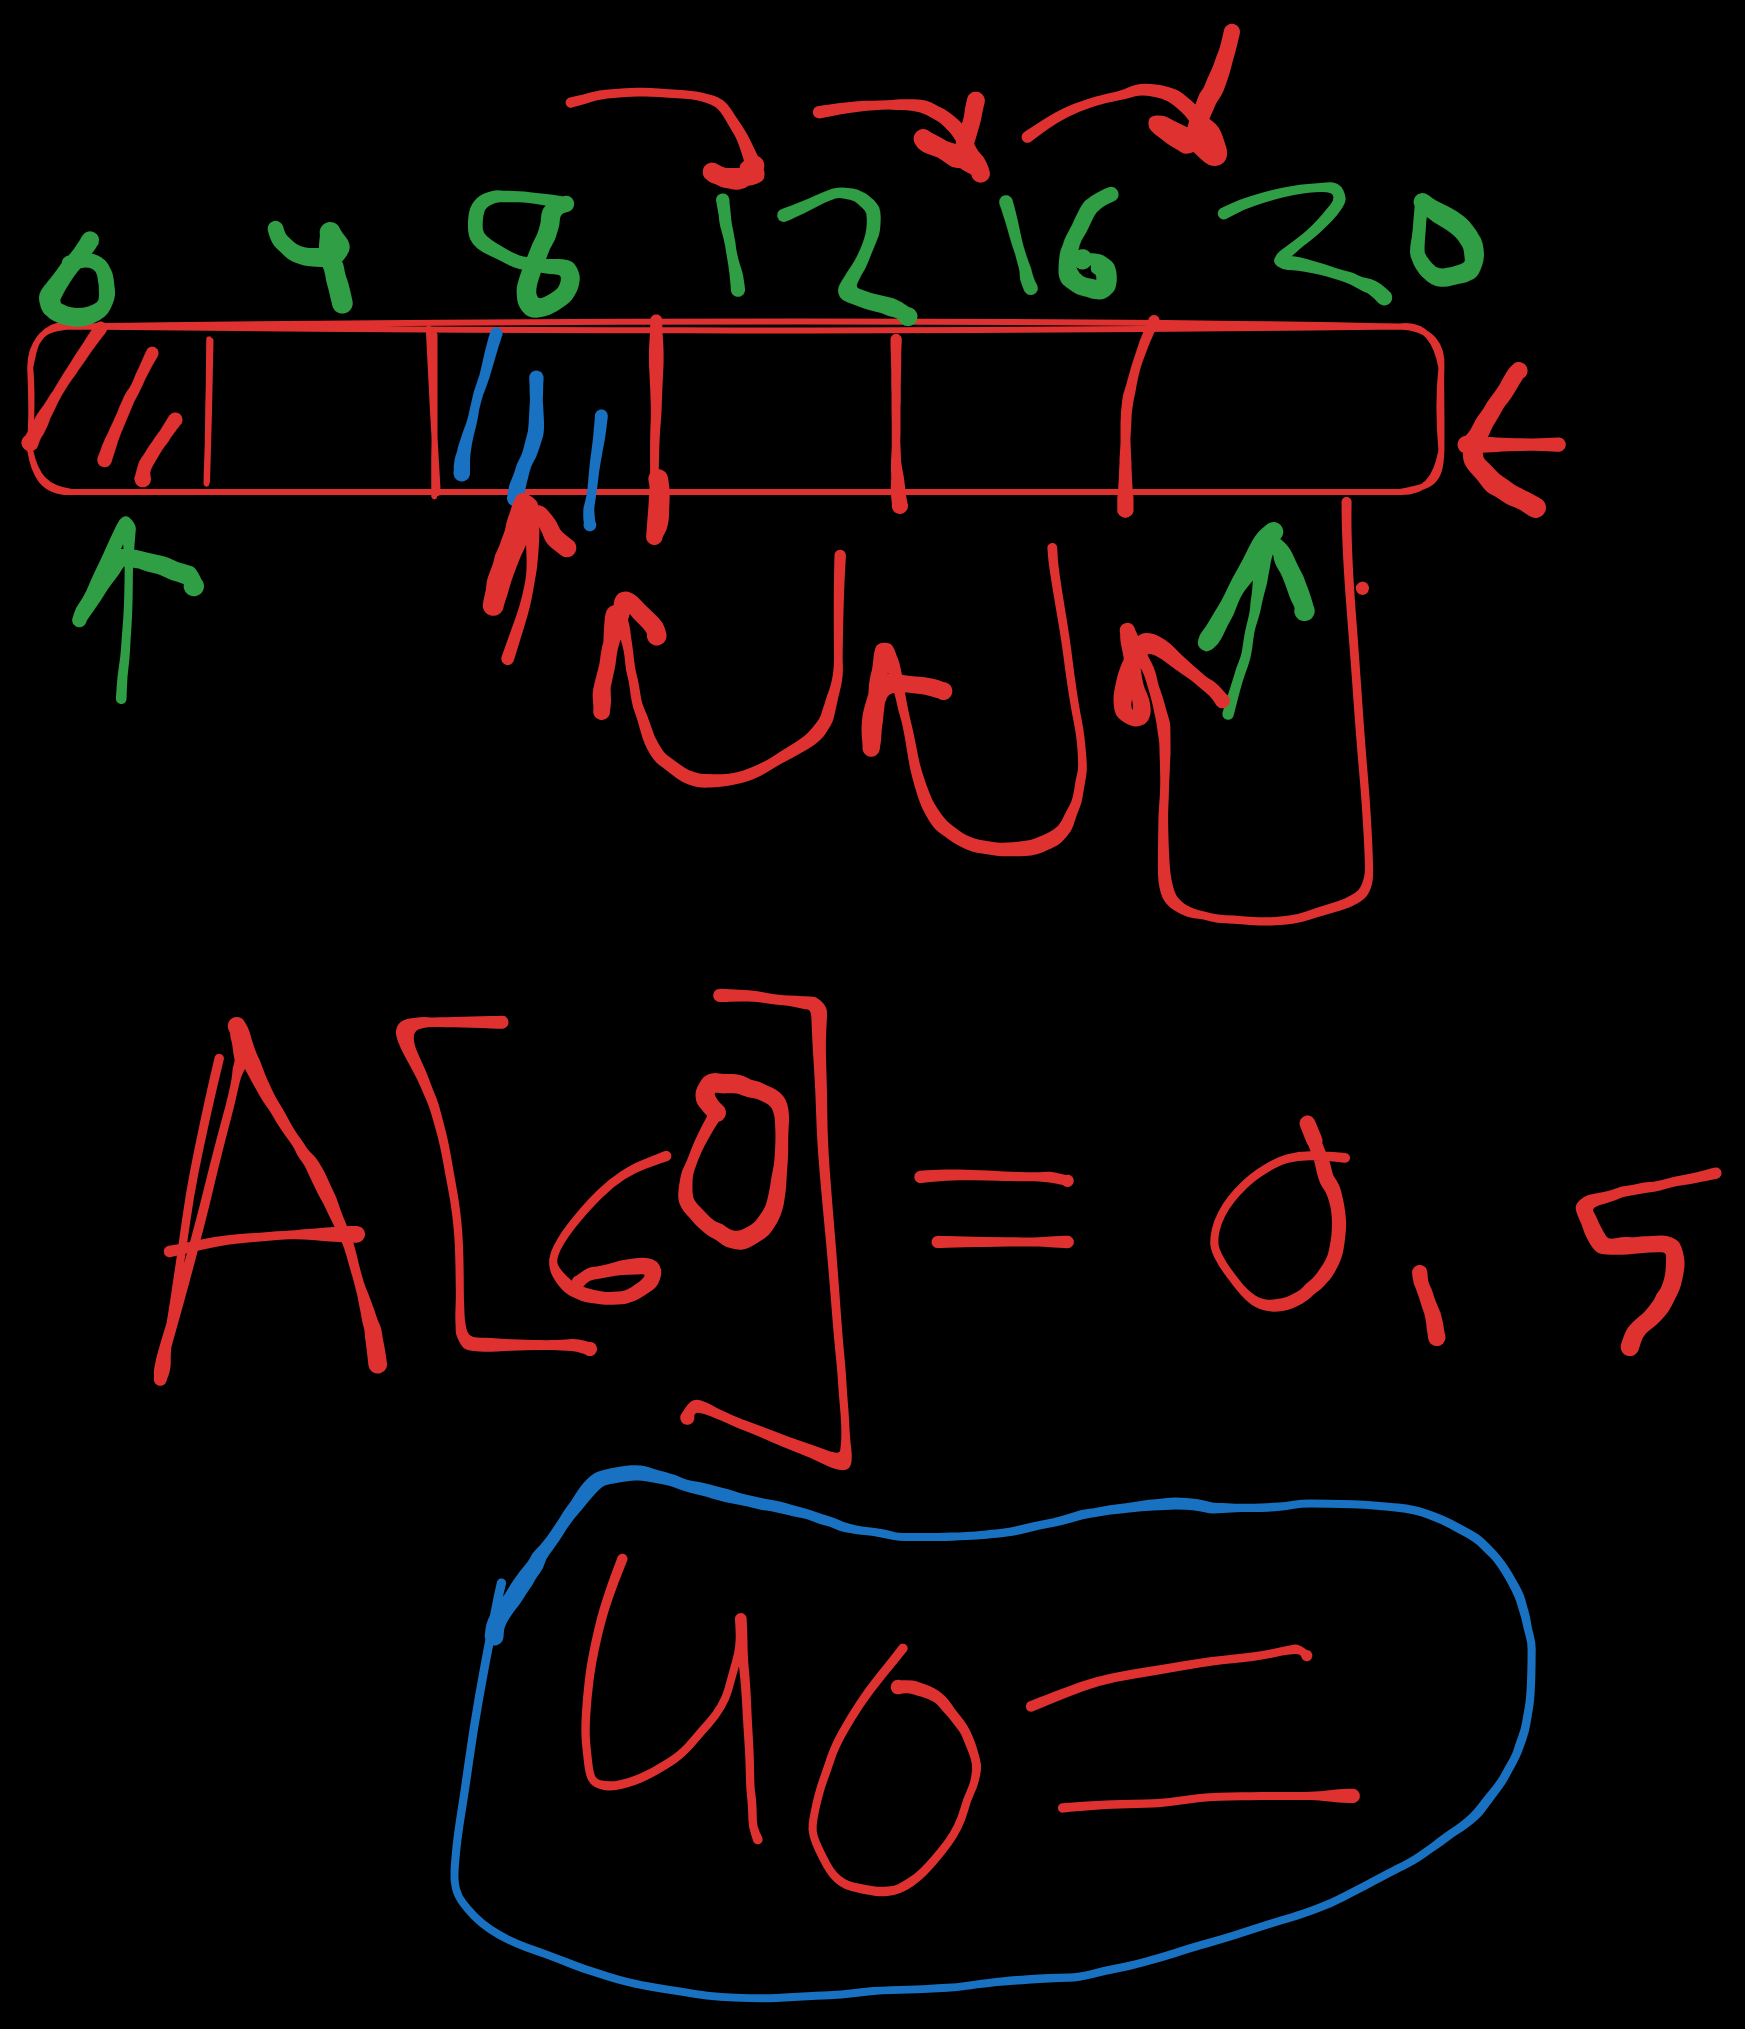 0 4 8 12 16 20
A[60] = 0,5
40 =